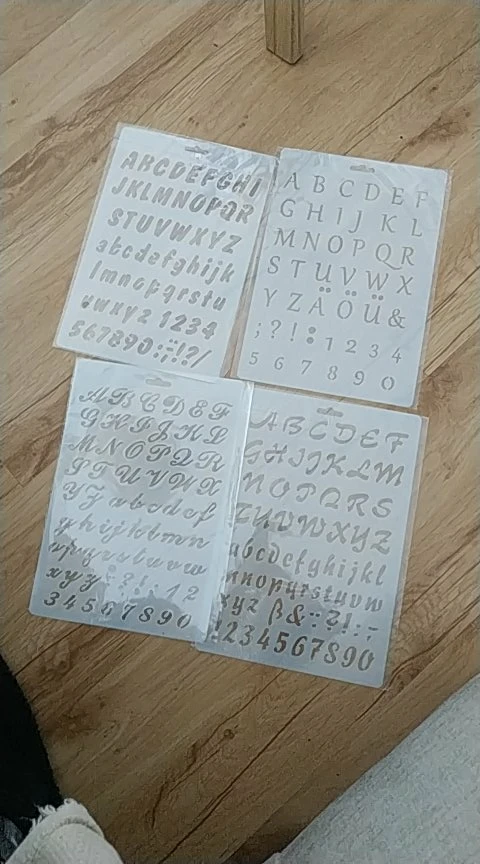 ABCDEFGHI
JKLMNOPQR
STUVWXYZ
abcdefghijk
lmnopqrstu
vwxyz 1234
567890:;!?/
A B C D E F
G H I J K L
M N O P Q R
S T U V W X
Y Z Ä Ö Ü &
; ? ! : 1 2 3 4
5 6 7 8 9 0
A B C D E F
G H I J K L
M N O P Q R
S T U V W X
Y Z a b c d e f
g h i j k l m n
o p q r s t u v w
x y z ? ! : 1 2
3 4 5 6 7 8 9 0
A B C D E F
G H I J K L M
N O P Q R S
T U V W X Y Z
a b c d e f g h i j k l
m n o p q r s t u v w
x y z ß & : ? ! ; -
1 2 3 4 5 6 7 8 9 0